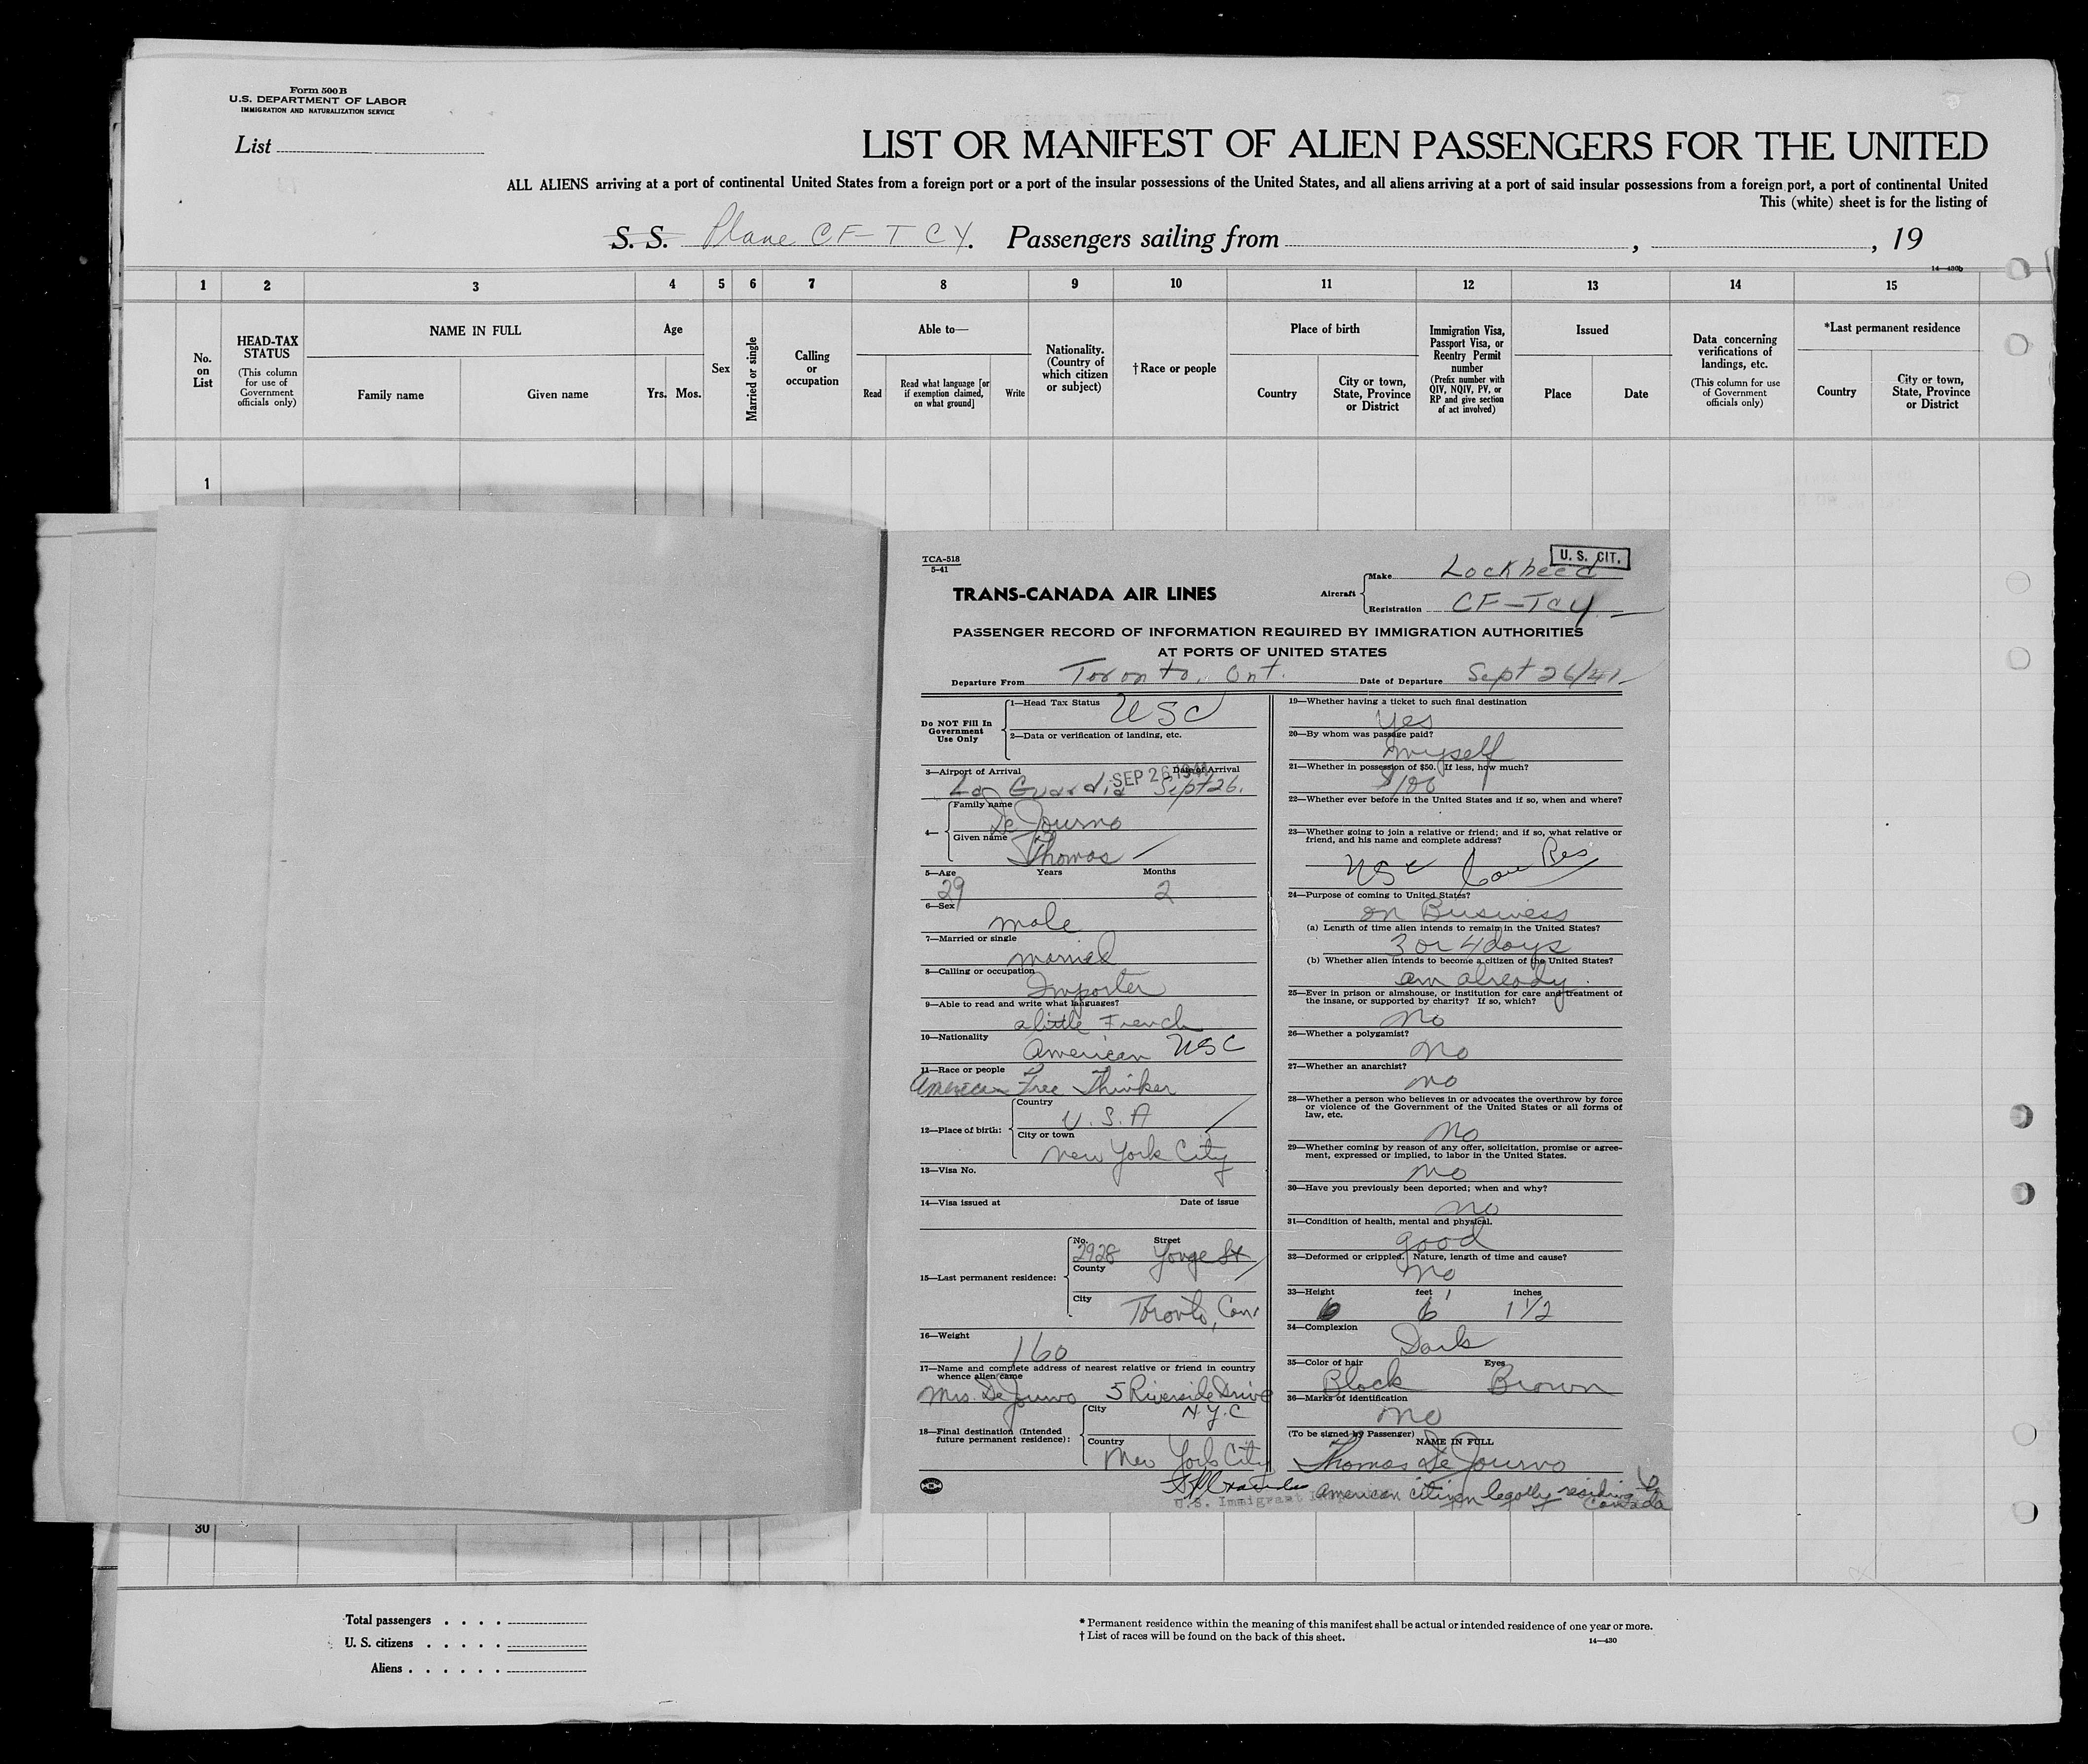 Form 500 B
U.S. DEPARTMENT OF LABOR
IMMIGRATION AND NATURALIZATION SERVICE
List
LIST OR MANIFEST OF ALIEN PASSENGERS FOR THE UNITED
ALL ALIENS arriving at a port of continental United States from a foreign port or a port of the insular possessions of the United States, and all aliens arriving at a port of said insular possessions from a foreign port, a port of continental United
This (white) sheet is for the listing of
S. S. Plane CF-TCY. Passengers sailing from , , 19
14—430b
1 2 3 4 5 6 7 8 9 10 11 12 13 14 15
No. on List
HEAD-TAX STATUS
(This column for use of Government officials only)
NAME IN FULL
Family name
Given name
Age
Yrs. Mos.
Sex
Married or single
Calling or occupation
Able to—
Read
Read what language [or if exemption claimed, on what ground]
Write
Nationality. (Country of which citizen or subject)
†Race or people
Place of birth
Country
City or town, State, Province or District
Immigration Visa, Passport Visa, or Reentry Permit number
(Prefix number with QIV, NQIV, PV, or RP and give section of act involved)
Issued
Place
Date
Data concerning verifications of landings, etc.
(This column for use of Government officials only)
*Last permanent residence
Country
City or town, State, Province or District
1
TCA-518
5-41
U. S. CIT.
TRANS-CANADA AIR LINES
Aircraft
Make Lockheed
Registration CF-TCY
PASSENGER RECORD OF INFORMATION REQUIRED BY IMMIGRATION AUTHORITIES
AT PORTS OF UNITED STATES
Departure From Toronto, Ont. Date of Departure Sept 26/41
Do NOT Fill In Government Use Only
1—Head Tax Status USC
2—Data or verification of landing, etc.
3—Airport of Arrival Date of Arrival
SEP 26 1941
La Guardia Sept 26.
4—
Family name
De Journo
Given name
Thomas
5—Age Years Months
29 2
6—Sex
male
7—Married or single
married
8—Calling or occupation
Importer
9—Able to read and write what languages?
a little French
10—Nationality
American USC
11—Race or people
American Free Thinker
12—Place of birth:
Country
U.S.A
City or town
New York City
13—Visa No.
14—Visa issued at Date of issue
15—Last permanent residence:
No. Street
2928 Yonge St
County
City
Toronto, Can
16—Weight
160
17—Name and complete address of nearest relative or friend in country
whence alien came
Mrs. De Journo 5 Riverside Drive
18—Final destination (Intended
future permanent residence):
City
N.Y.C
Country
New York City
19—Whether having a ticket to such final destination
Yes
20—By whom was passage paid?
myself
21—Whether in possession of $50. If less, how much?
$100
22—Whether ever before in the United States and if so, when and where?
23—Whether going to join a relative or friend; and if so, what relative or
friend, and his name and complete address?
USC Can Res
24—Purpose of coming to United States?
on Business
(a) Length of time alien intends to remain in the United States?
3 or 4 days
(b) Whether alien intends to become a citizen of the United States?
am already
25—Ever in prison or almshouse, or institution for care and treatment of
the insane, or supported by charity? If so, which?
No
26—Whether a polygamist?
no
27—Whether an anarchist?
no
28—Whether a person who believes in or advocates the overthrow by force
or violence of the Government of the United States or all forms of
law, etc.
no
29—Whether coming by reason of any offer, solicitation, promise or agree-
ment, expressed or implied, to labor in the United States.
no
30—Have you previously been deported; when and why?
no
31—Condition of health, mental and physical.
good
32—Deformed or crippled. Nature, length of time and cause?
no
33—Height feet inches
6 6 1 1/2
34—Complexion
Dark
35—Color of hair Eyes
Black Brown
36—Marks of identification
no
(To be signed by Passenger)
NAME IN FULL
Thomas De Journo
American citizen legally residing in
Canada
U.S. Immigrant
30
Total passengers . . . .
U. S. citizens . . . . .
Aliens . . . . . .
* Permanent residence within the meaning of this manifest shall be actual or intended residence of one year or more.
† List of races will be found on the back of this sheet.
14—430